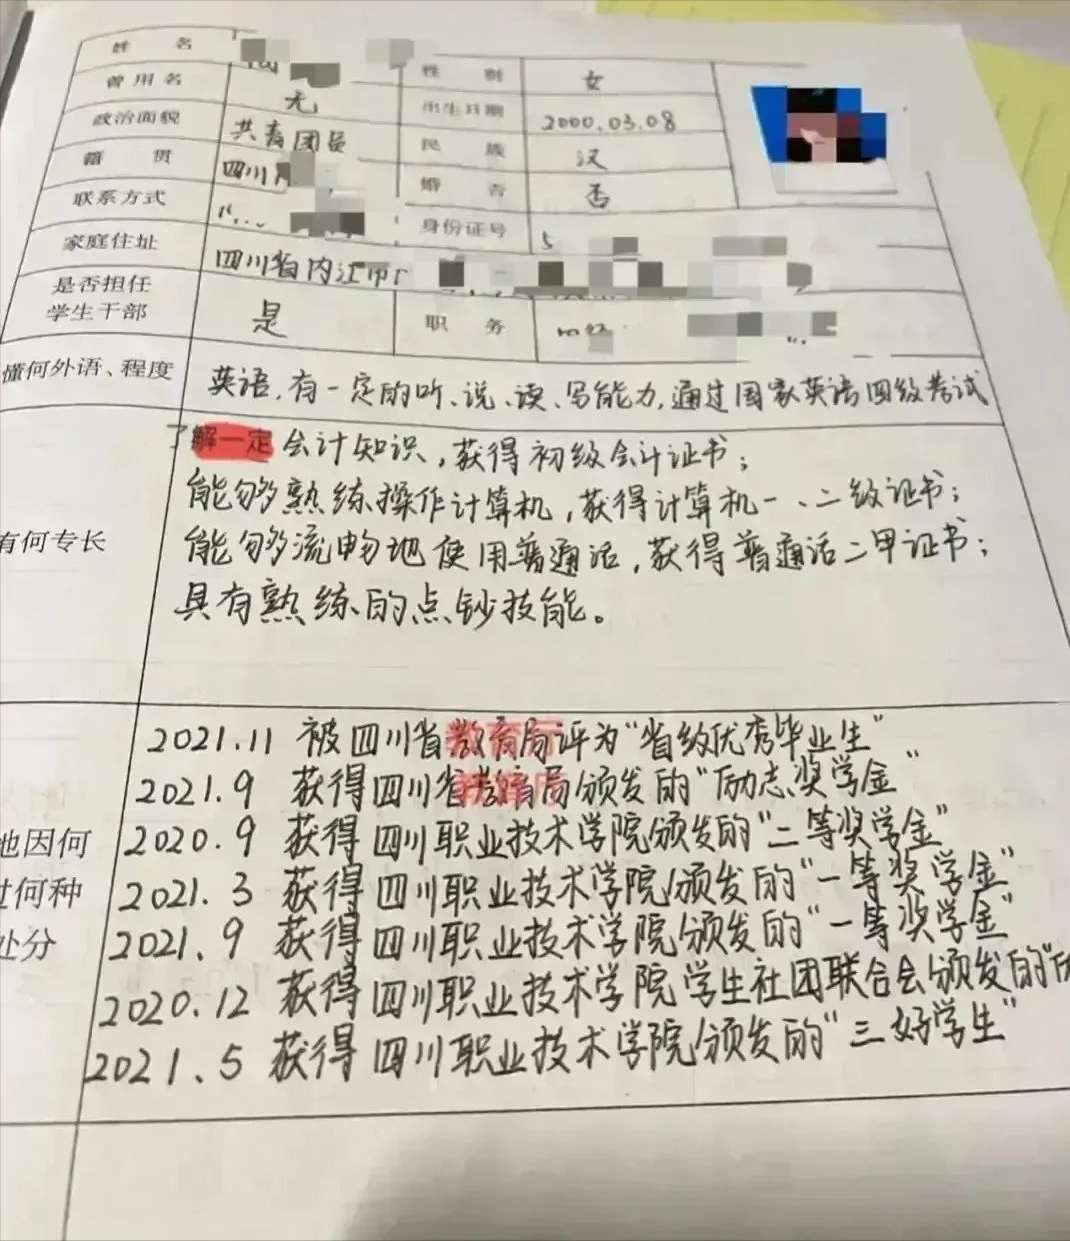 姓 名
性 别 女
曾用名 无
出生日期 2000.03.08
政治面貌 共青团员
民 族 汉
籍 贯 四川
婚 否 否
联系方式
身份证号 5
家庭住址 四川省内江市
是否担任
学生干部 是
职 务
懂何外语、程度 英语,有一定的听、说、读、写能力,通过国家英语四级考试
有何专长
了解一定会计知识,获得初级会计证书;
能够熟练操作计算机,获得计算机一、二级证书;
能够流畅地使用普通话,获得普通话二甲证书;
具有熟练的点钞技能。
地因何
过何种
处分
2021.11 被四川省教育局评为“省级优秀毕业生”
2021.9 获得四川省教育局颁发的“励志奖学金”
2020.9 获得四川职业技术学院颁发的“二等奖学金”
2021.3 获得四川职业技术学院颁发的“一等奖学金”
2021.9 获得四川职业技术学院颁发的“一等奖学金”
2020.12 获得四川职业技术学院学生社团联合会颁发的“
2021.5 获得四川职业技术学院颁发的“三好学生”